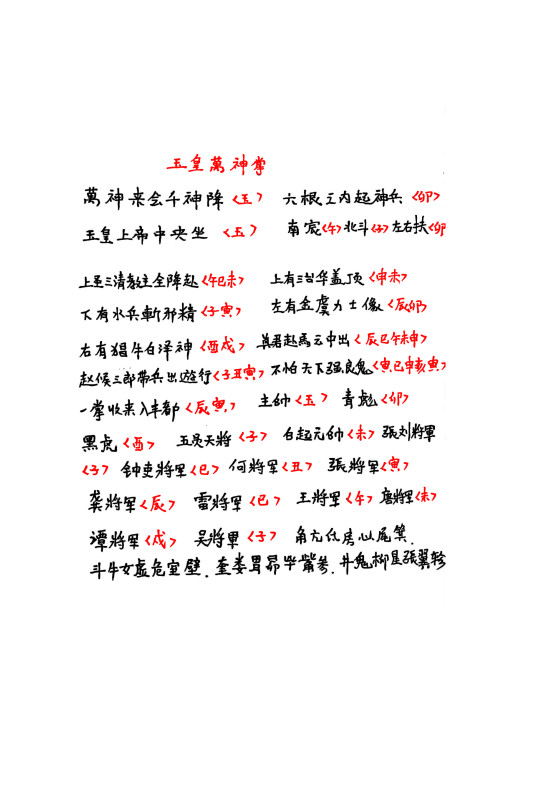 玉皇萬神掌
萬神来会千神降〈玉〉 六根三内起神兵〈卯〉
玉皇上帝中央坐〈玉〉 南宸〈午〉北斗〈子〉左右扶〈卯
上圣三清教主全降赴〈午巳未〉 上有三台华盖頂〈申未〉
下有水兵斬邪精〈子寅〉 左有金虞力士像〈辰卯〉
右有猖牛白泽神〈酉戌〉 真君赴馬云中出〈辰巳午未申〉
赵侯三郎带兵出遊行〈子丑寅〉 不怕天下强良鬼〈寅巳申亥寅〉
一掌收来入丰都〈辰寅,〉 主帥〈玉〉 青彪〈卯〉
黑虎〈酉〉 五灵天將〈子〉 白起元帥〈未〉 張刘將軍
〈子〉 钟吏將軍〈巳〉 何將軍〈丑〉 張將軍〈寅〉
龚將军〈辰〉 雷將军〈巳〉 王將军〈午〉 唐將军〈未〉
谭將军〈戌〉 吴將軍〈子〉 角亢氐房心尾箕.
斗牛女虚危室壁. 奎娄胃昴毕觜参. 井鬼柳星張翼轸